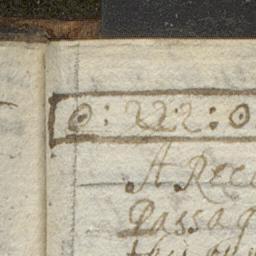 ⊙: 222: ⊙
A Rec
Passa